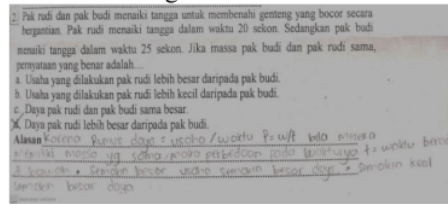 2. Pak rudi dan pak budi menaiki tangga untuk membenahi genteng yang bocor secara
bergantian. Pak rudi menaiki tangga dalam waktu 20 sekon. Sedangkan pak budi
menaiki tangga dalam waktu 25 sekon. Jika massa pak budi dan pak rudi sama,
pernyataan yang benar adalah....
a. Usaha yang dilakukan pak rudi lebih besar daripada pak budi.
b. Usaha yang dilakukan pak rudi lebih kecil daripada pak budi.
c. Daya pak rudi dan pak budi sama besar.
d. Daya pak rudi lebih besar daripada pak budi.
Alasan Karena Rumus daya = usaha / waktu P = w/t bila mereka
memiliki massa yg sama maka perbedaan pada waktunya t = waktu
semakin besar usaha semakin besar daya semakin kecil
semakin besar daya